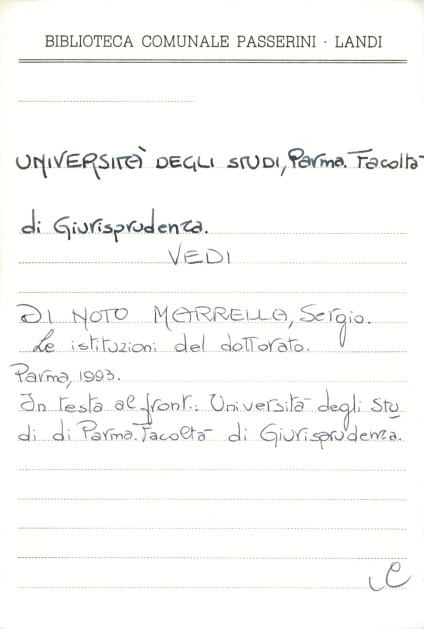 BIBLIOTECA COMUNALE PASSERINI - LANDI
UNIVERSITÀ DEGLI STUDI, Parma. Facoltà
di Giurisprudenza.
VEDI
DI NOTO MARRELLA, Sergio.
Le istituzioni del dottorato.
Parma, 1993.
In testa al front.: Università degli Stu
di di Parma. Facoltà di Giurisprudenza.